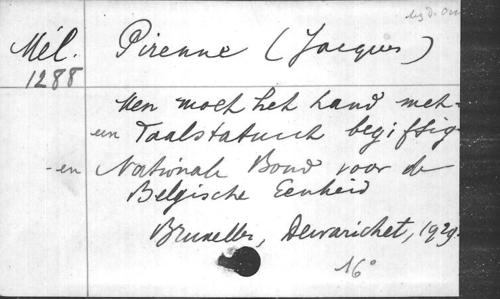 Mél. Pirenne (Jacques)
1288
Men moet het land met
een Taalstatuut begiftig-
-en Nationale Bond voor de
Belgische Eenheid
Bruxelles, Dewarichet, 1929.
16°